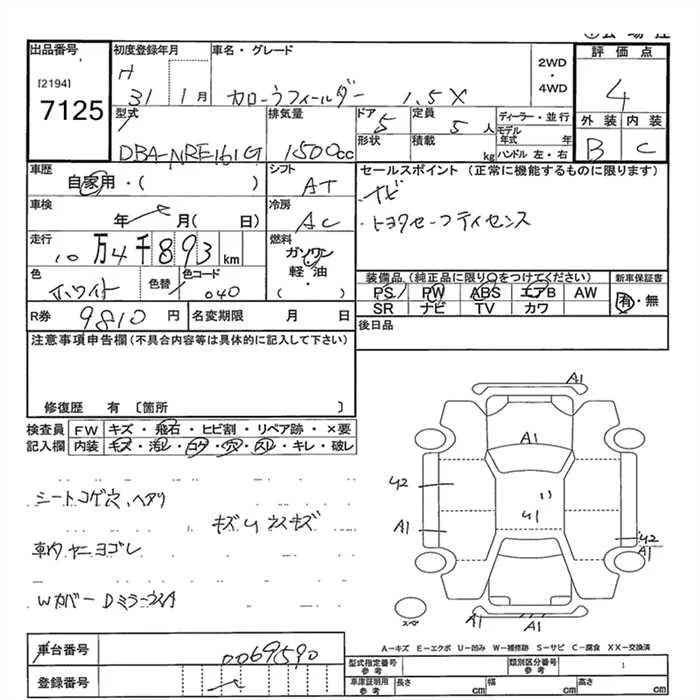 出品番号 初度登録年月 車名・グレード 2WD・4WD 評価点
[2194] 7125
H 31 1月 カローラフィールダー 1.5X 4
型式 排気量 ドア 5 定員 5人 ディーラー・並行 外装 内装
DBA-NRE161G 1500cc 形状 積載 kg モデル年式 年 ハンドル 左・右 B C
車歴 自家用・( ) シフト AT セールスポイント (正常に機能するものに限ります)
車検 年 月( 日) 冷房 AC ・ナビ
・トヨタセーフティセンス
走行 10万4千893km 燃料 ガソリン・軽油・( )
色 ホワイト 色替 色コード 040
装備品 (純正品に限り○をつけてください) 新車保証書
PS PW ABS エアB AW 有・無
SR ナビ TV カワ
R券 9810円 名変期限 月 日 後日品
注意事項申告欄(不具合内容等は具体的に記入して下さい)
修復歴 有 〔箇所 〕
検査員記入欄 FW キズ・飛石・ヒビ割・リペア跡・×要
内装 キズ・汚レ・コゲ・穴・スレ・キレ・破レ
シートコゲ穴、ヘタリ
キズUウスキズ
車内ヤニヨゴレ
Wカバー Dミラーウスキ
A1
A1
U2
U1
A1
U2
A1
スペア
A1
A1
A-キズ E-エクボ U-凹み W-補修跡 S-サビ C-腐食 XX-交換済
車台番号 0069590
登録番号
型式指定番号 参考 類別区分番号 参考
車庫証明用 参考 長さ cm 幅 cm 高さ cm